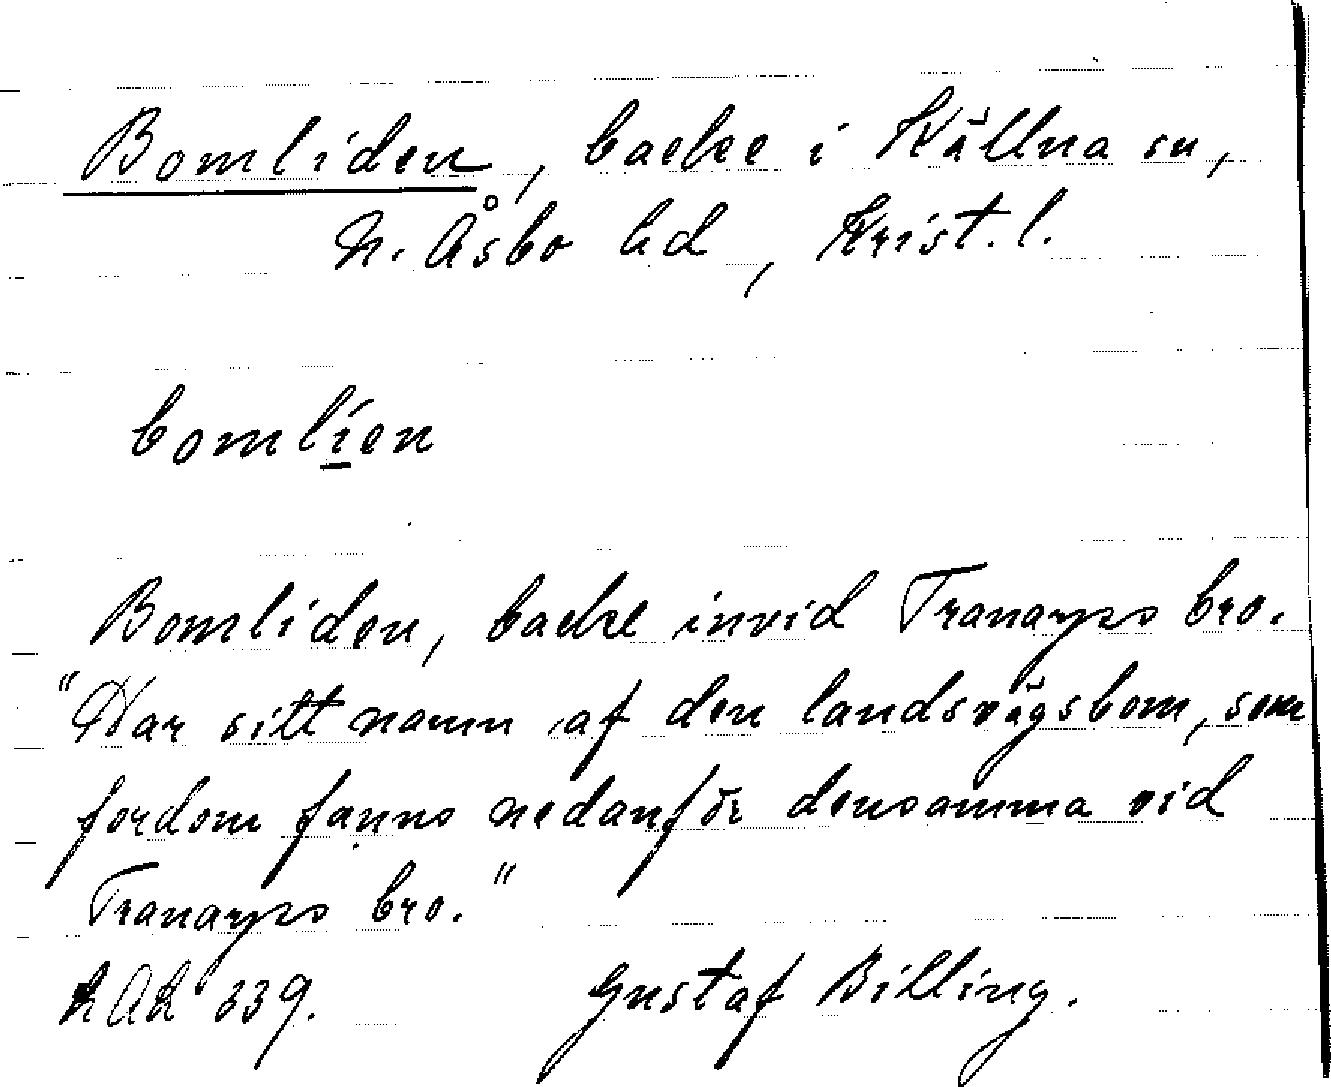 Bomliden, backe i Källna sn,
N. Åsbo hd, Krist. l.
bomlíen
Bomliden, backe invid Tranarps bro.
"Har sitt namn af den landsvägsbom, som
fordom fanns nedanför densamma vid
Tranarps bro."
LAL 339. Gustaf Billing.